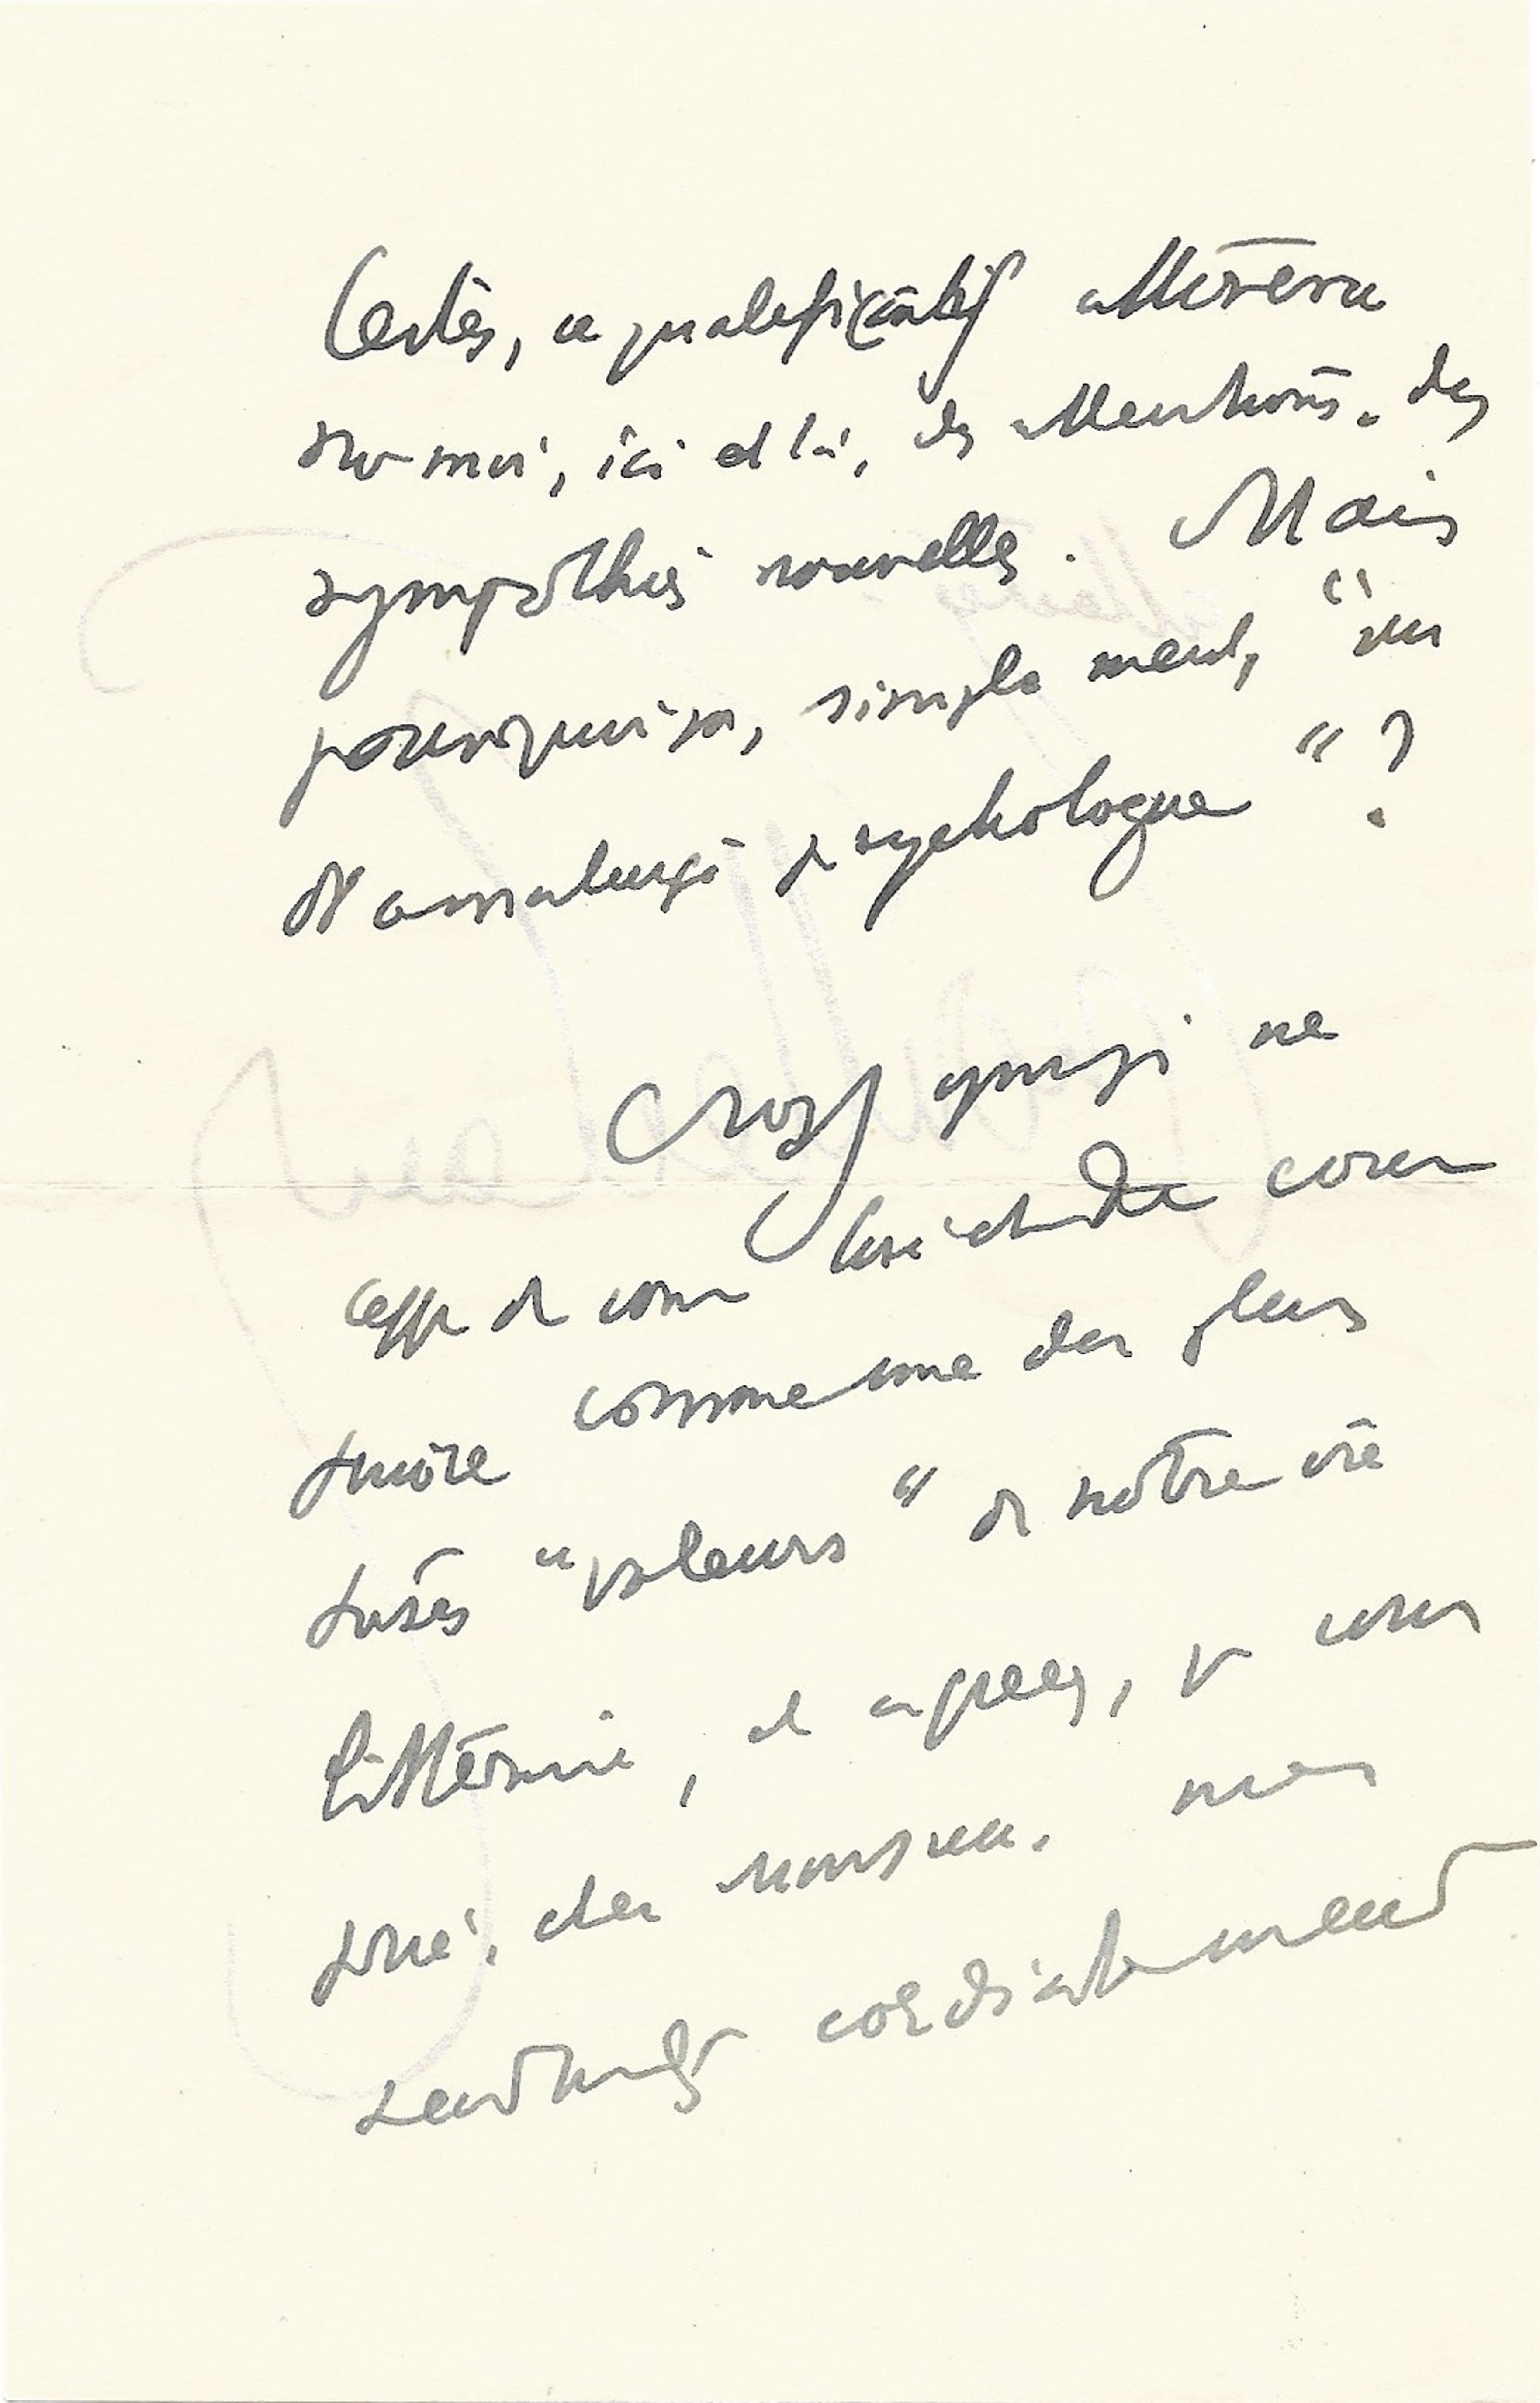 Certes, ce qualificatif attirera
sur moi, ici et là, des attentions, des
sympathies nouvelles. Mais
pourquoi pas, simplement, "un
dramaturge psychologue" ?
Croyez que je ne
cesse de vous considérer
comme une des plus
sûres "valeurs" de notre vie
littéraire, et agréez, je vous
prie, cher Monsieur, mes
sentiments cordialement